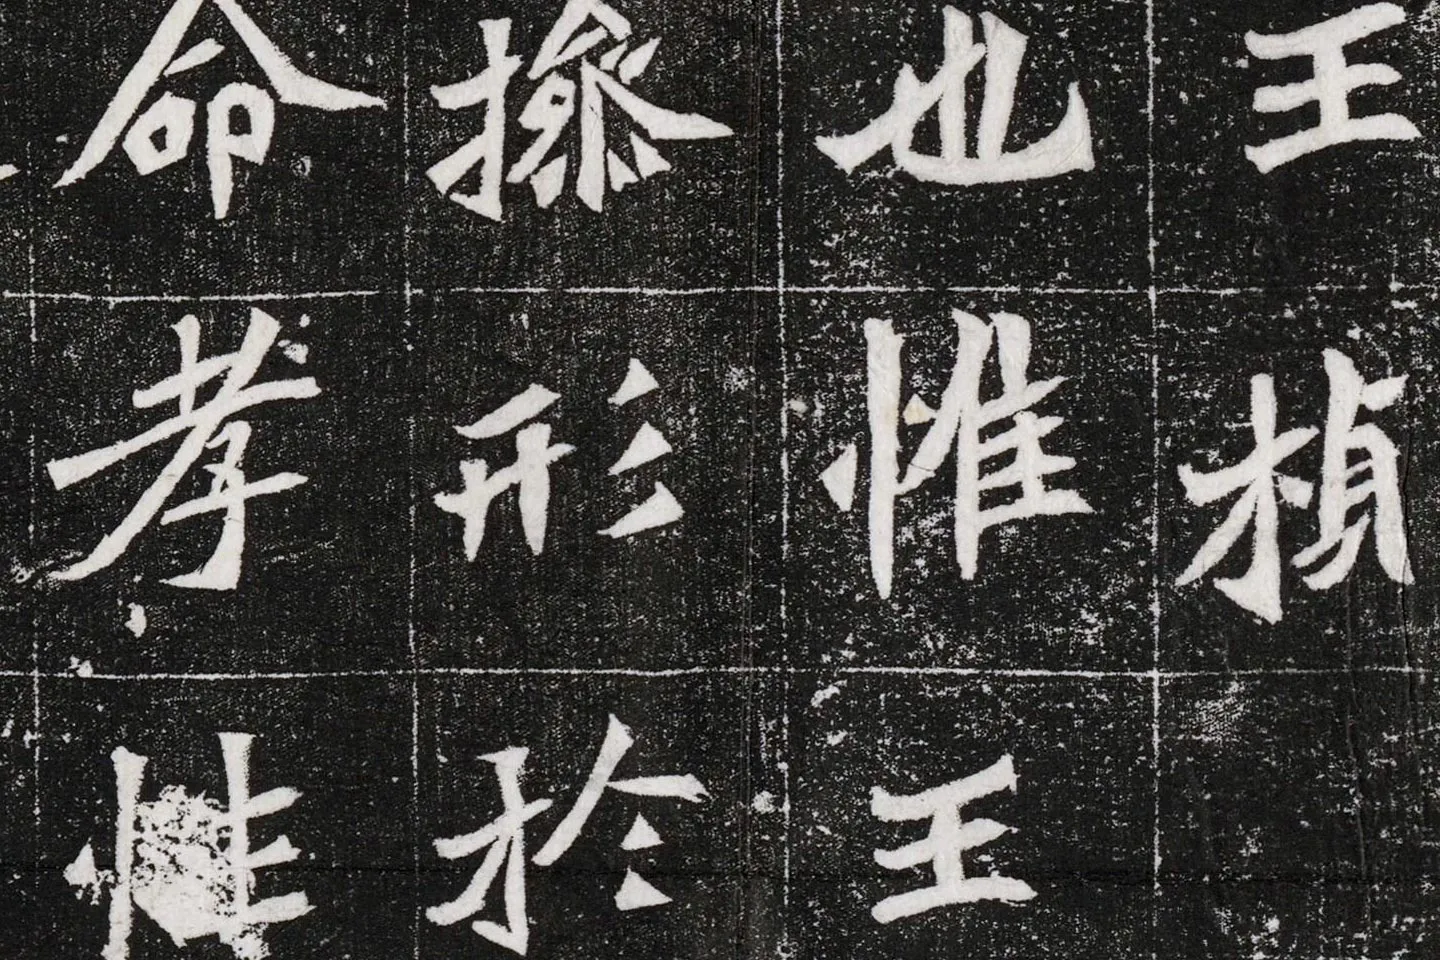 王楨
也惟王
操形於
命孝性